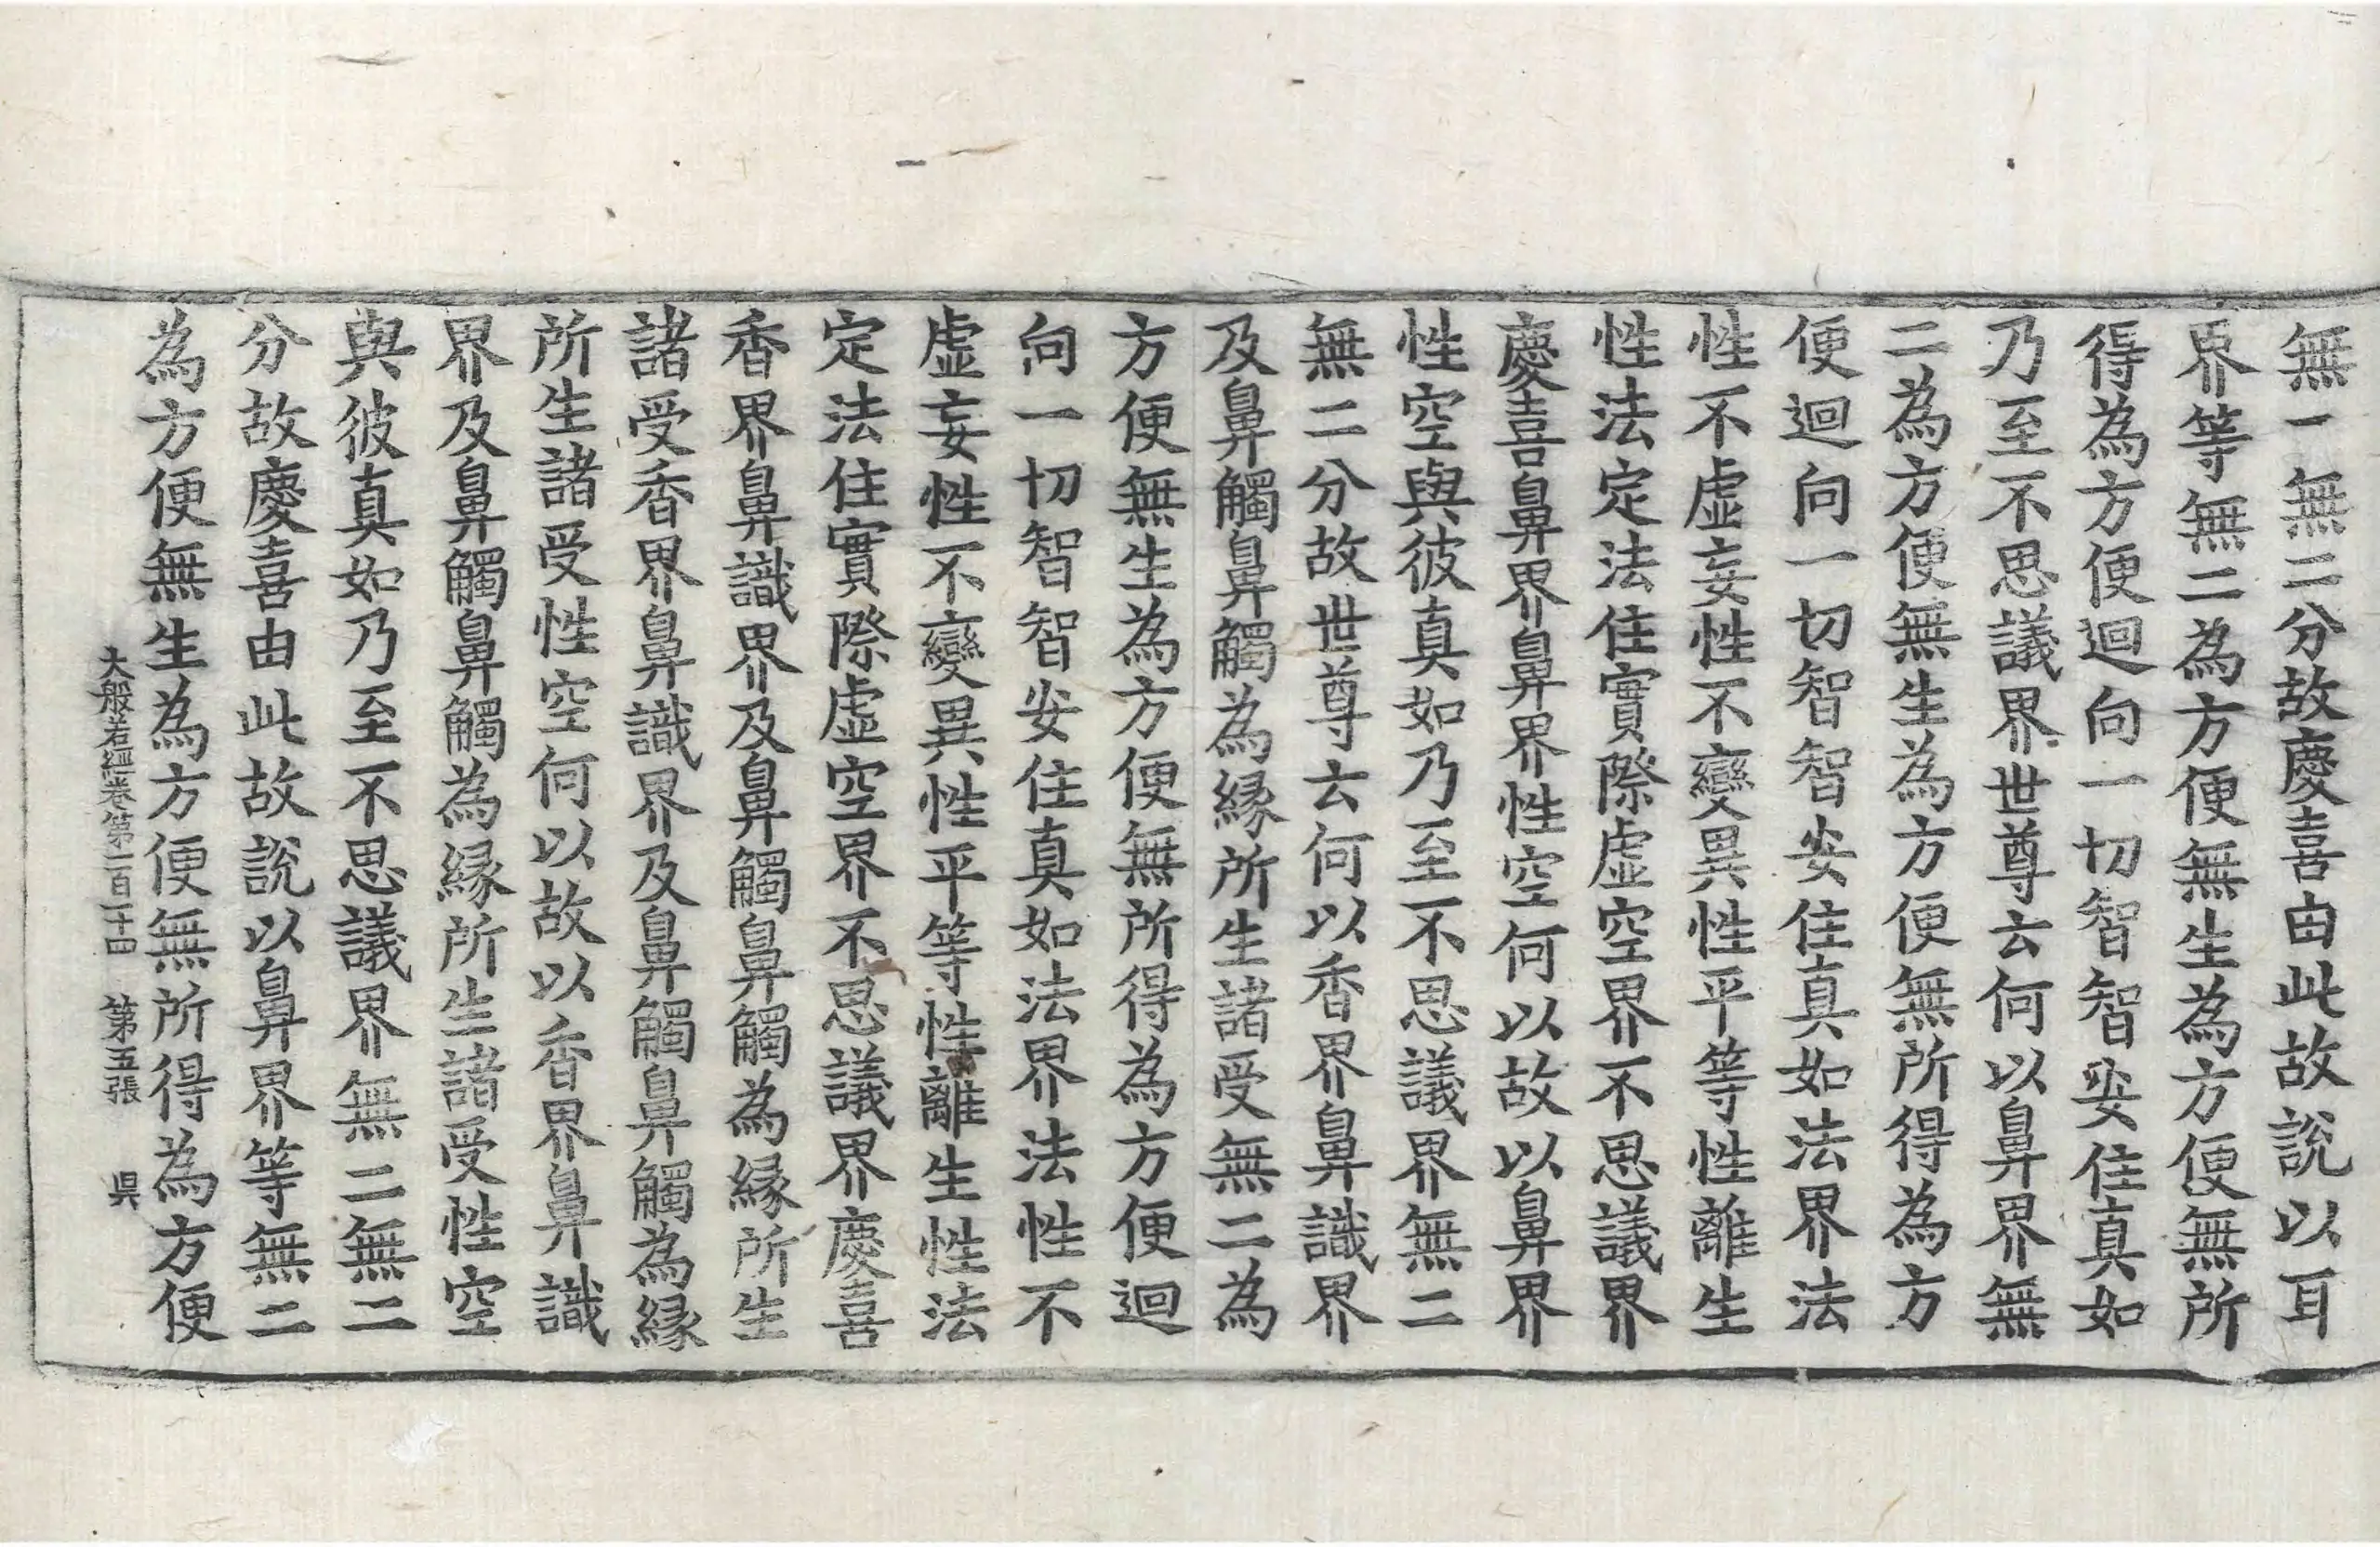 無一無二分故慶喜由此故說以耳
界等無二為方便無生為方便無所
得為方便迴向一切智智安住真如
乃至不思議界世尊云何以鼻界無
二為方便無生為方便無所得為方
便迴向一切智智安住真如法界法
性不虛妄性不變異性平等性離生
性法定法住實際虛空界不思議界
慶喜鼻界鼻界性空何以故以鼻界
性空與彼真如乃至不思議界無二
無二分故世尊云何以香界鼻識界
及鼻觸鼻觸為緣所生諸受無二為
方便無生為方便無所得為方便迴
向一切智智安住真如法界法性不
虛妄性不變異性平等性離生性法
定法住實際虛空界不思議界慶喜
香界鼻識界及鼻觸鼻觸為緣所生
諸受香界鼻識界及鼻觸鼻觸為緣
所生諸受性空何以故以香界鼻識
界及鼻觸鼻觸為緣所生諸受性空
與彼真如乃至不思議界無二無二
分故慶喜由此故說以鼻界等無二
為方便無生為方便無所得為方便
大般若經卷第一百二十四 第五張